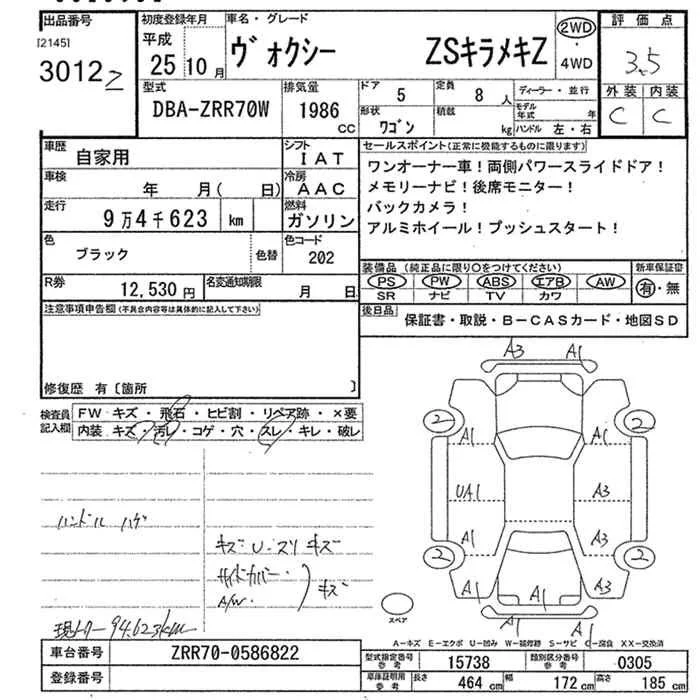 出品番号
[2145]
3012 2
初度登録年月
平成
25 10 月
車名・グレード
ヴォクシー ZSキラメキZ
2WD
・
4WD
評価点
3.5
外装 内装
C C
型式
DBA-ZRR70W
排気量
1986
CC
ドア
5
定員
8 人
形状
ワゴン
積載
kg
ディーラー・並行
モデル
年式 年
ハンドル 左・右
車歴
自家用
シフト
IAT
車検
年 月( 日)
冷房
AAC
走行
9万4千623 km
燃料
ガソリン
色
ブラック
色替
色コード
202
R券
12,530 円
名変通知期限
月 日
セールスポイント(正常に機能するものに限ります)
ワンオーナー車!両側パワースライドドア!
メモリーナビ!後席モニター!
バックカメラ!
アルミホイール!プッシュスタート!
装備品 (純正品に限り○をつけてください)
PS PW ABS エアB AW
SR ナビ TV カワ
新車保証書
有・無
後日品
保証書・取説・B-CASカード・地図SD
注意事項申告欄(不具合内容等は具体的に記入して下さい)
修復歴 有 〔箇所 〕
検査員
記入欄
FW キズ・飛石・ヒビ割・リペア跡・×要
内装 キズ・汚レ・コゲ・穴・スレ・キレ・破レ
ハンドル ハゲ
キズ U・スリキズ
サイドカバー・
A/W・
キズ
94.623km
A3 A1
2 2
A1 A1
UA1 A3
A1 A3
2 2
A1 A1 A3
A1 A1
スペア
A-キズ E-エクボ U-凹み W-補修跡 S-サビ C-腐食 XX-交換済
車台番号
ZRR70-0586822
登録番号
型式指定番号
参考
15738
類別区分番号
参考
0305
車庫証明用
参考
長さ
464 cm
幅
172 cm
高さ
185 cm